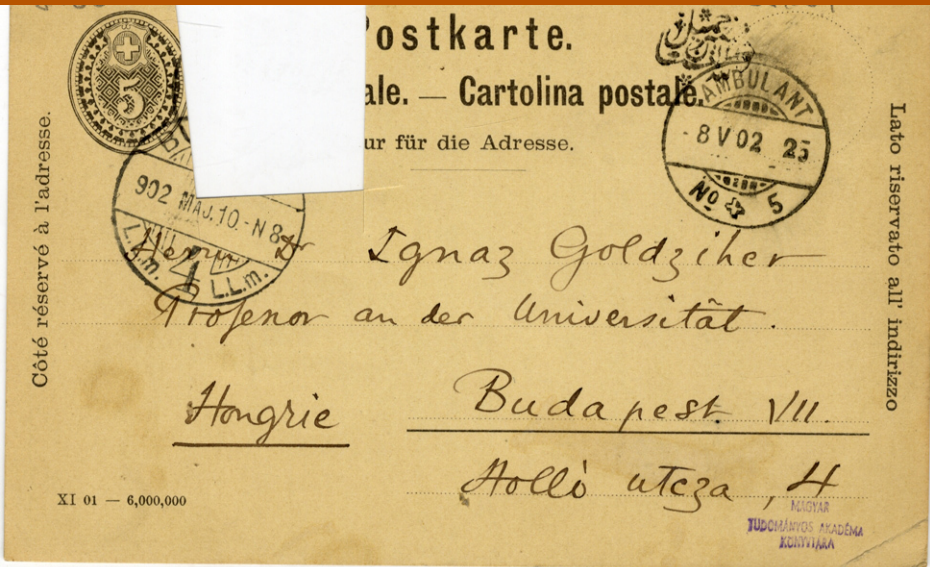 Postkarte.
ale. — Cartolina postale.
ur für die Adresse.
5
AMBULANT
- 8 V 02 25
No 5
902 MAJ. 10 - N 8
L.L.m. 4 L.L.m.
Côté réservé à l'adresse.
Lato riservato all' indirizzo
Herrn Dr Ignaz Goldziher
Professor an der Universität.
Hongrie Budapest VII.
Holló utcza, 4
XI 01 — 6,000,000
MAGYAR
TUDOMÁNYOS AKADÉMIA
KÖNYVTÁRA